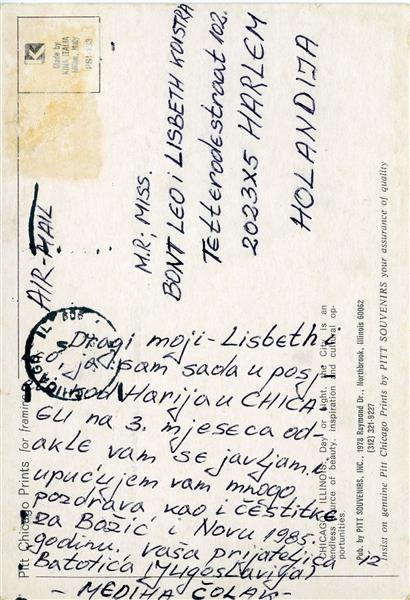 Made by
KINA ITALIA
Milan, Italy
AIR-MAIL
M.R; MISS.
BONT LEO i LISBETH KOISTRA
Tetterodestraat 102.
2023X5 HARLEM
HOLANDIJA
CHICAGO IL 606
Dragi moji - Lisbeth i
o, ja sam sada u pos
kod Harija u CHICA
GU na 3. mjeseca od-
akle vam se javljam i
upućujem vam mnogo
pozdrava kao i čestitke
za Božić i Novu 1985.
godinu. vaša prijateljica iz
Batotića (Jugoslavija)
- MEDIHA ČOLAK -
Pitt Chicago Prints for framing
CHICAGO, ILLINOIS, Day or Night, the City is an
endless source of beauty, inspiration and cultural op-
portunities.
Pub. by PITT SOUVENIRS, INC., 1978 Raymond Dr., Northbrook, Illinois 60062
(312) 321-9227
Insist on genuine Pitt Chicago Prints by PITT SOUVENIRS your assurance of quality